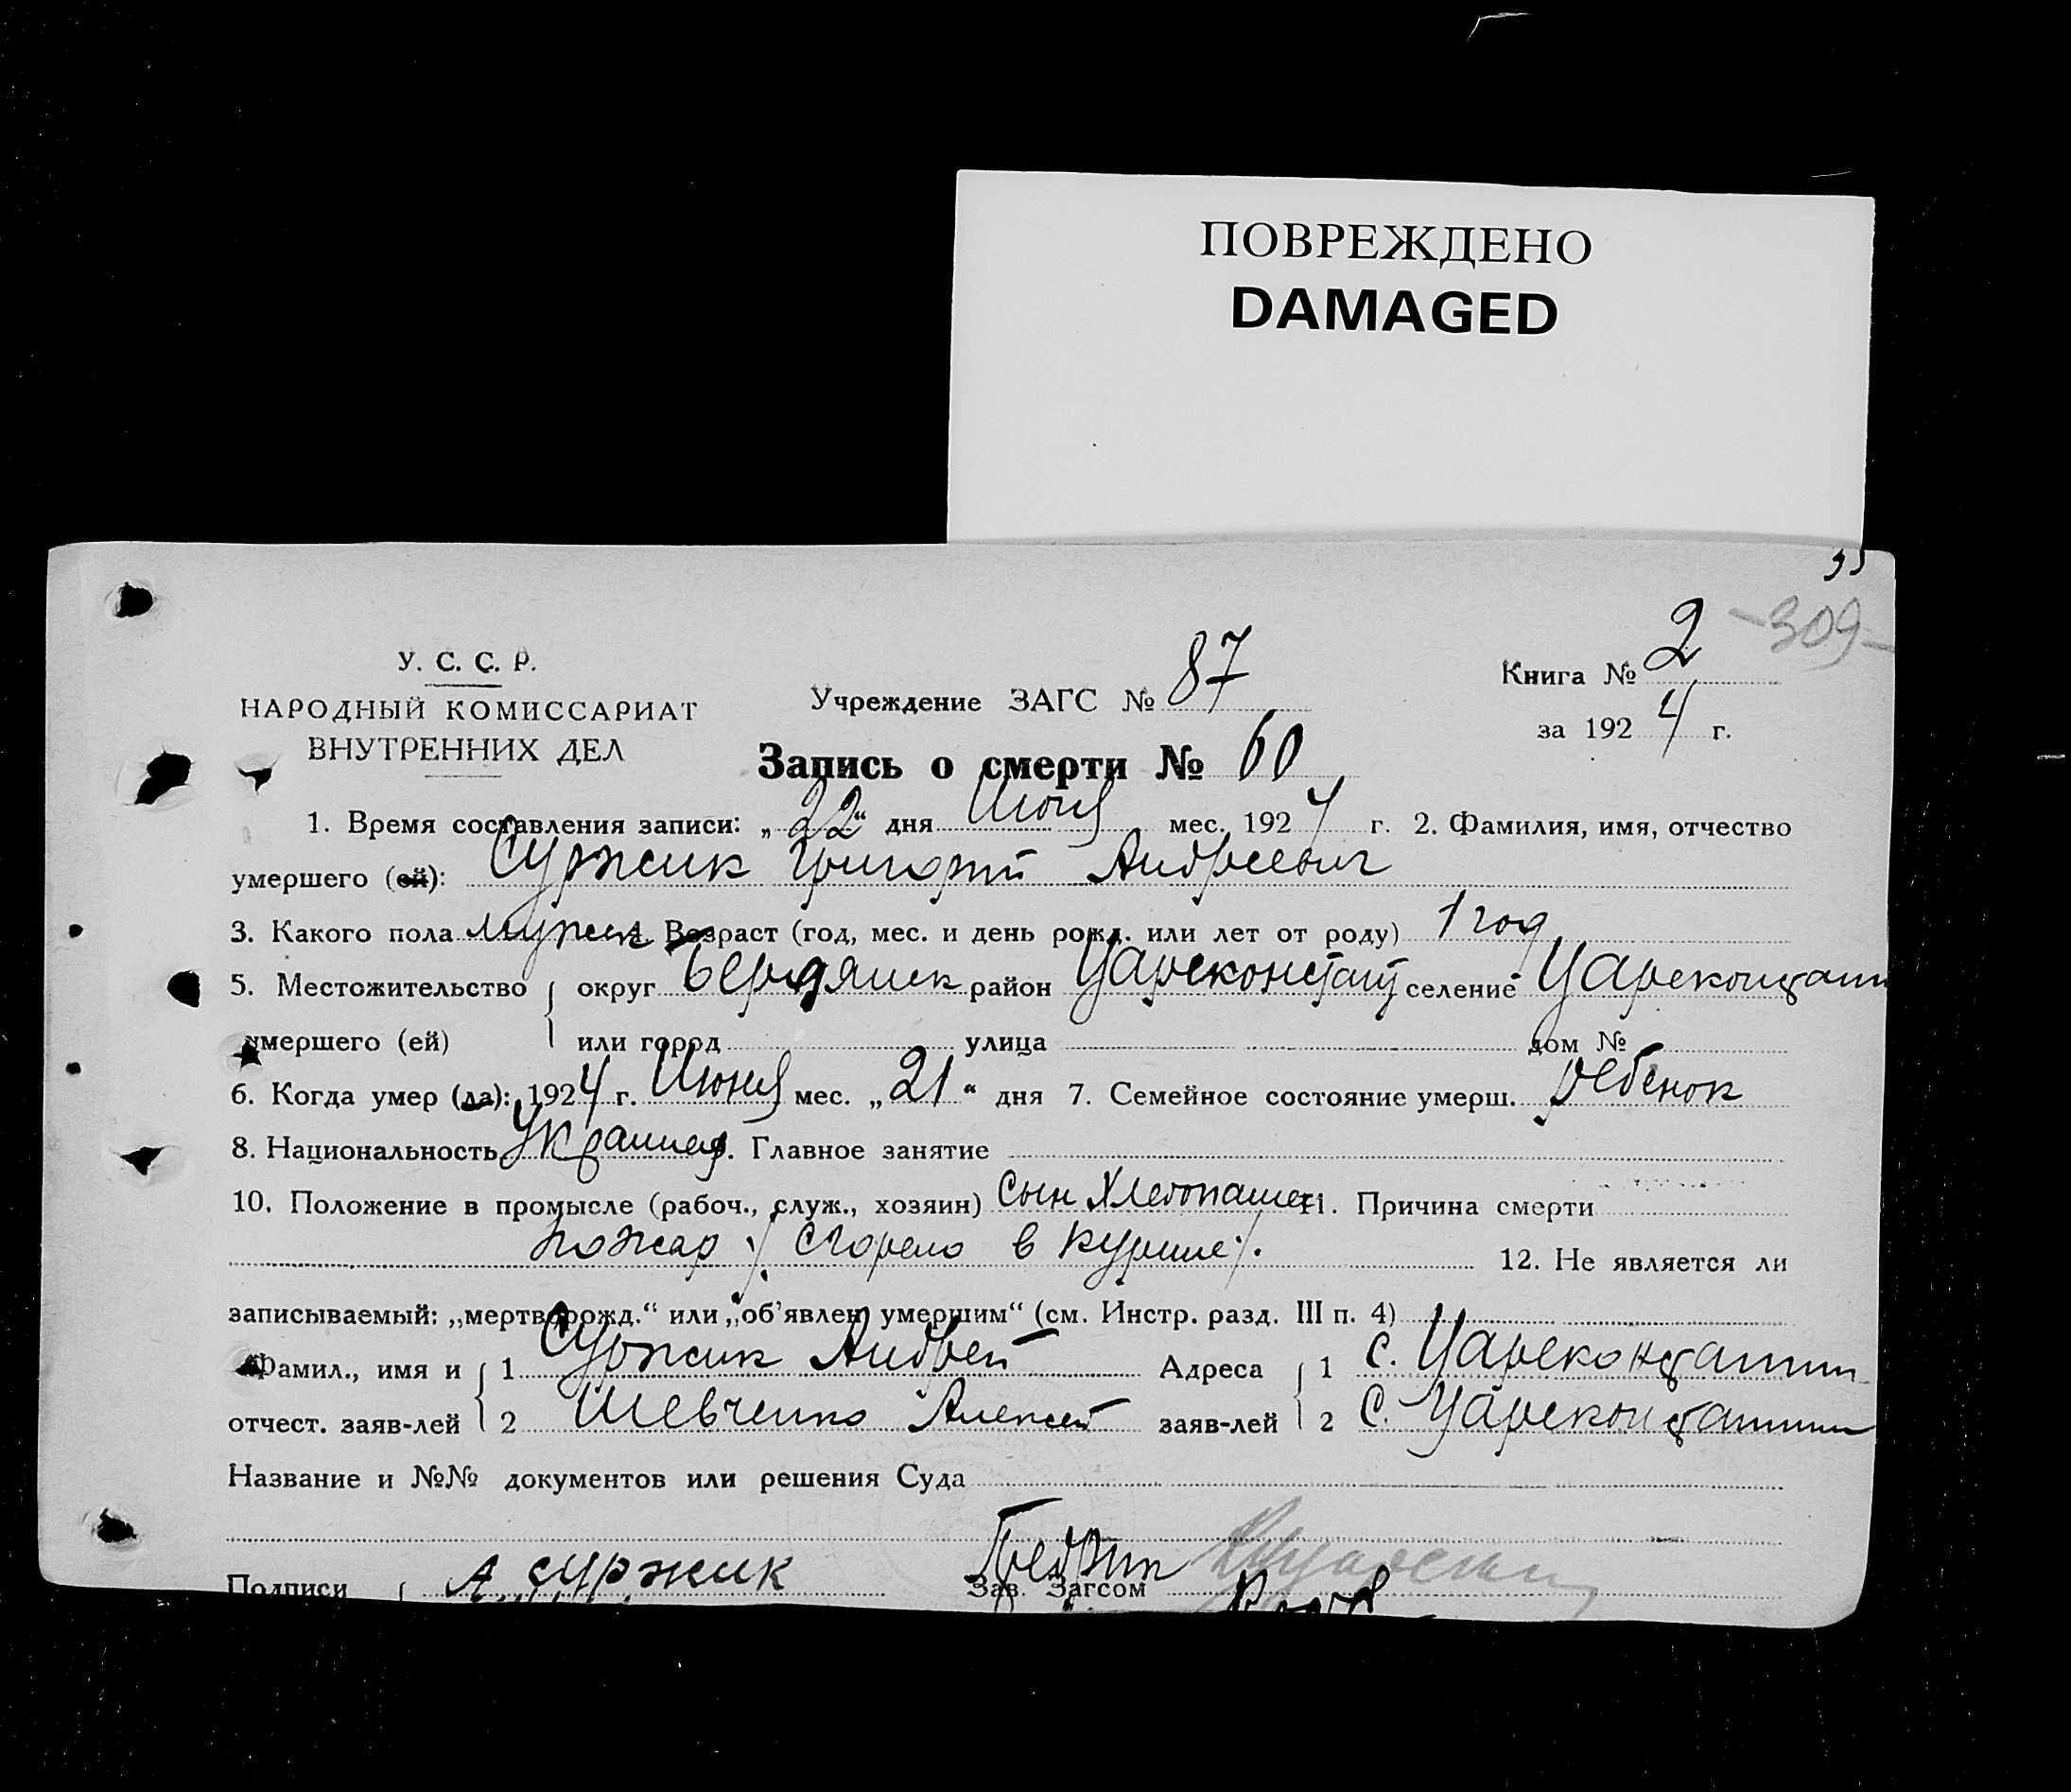 ПОВРЕЖДЕНО
DAMAGED
-309-
У. С. С. Р.
НАРОДНЫЙ КОМИССАРИАТ
ВНУТРЕННИХ ДЕЛ
Учреждение ЗАГС № 87
Книга № 2
за 1924 г.
Запись о смерти № 60
1. Время составления записи: „22“ дня Июня мес. 1924 г. 2. Фамилия, имя, отчество
умершего (ей): Суржик Григорий Андреевич
3. Какого пола мужск 4. Возраст (год, мес. и день рожд. или лет от роду) 1 год
5. Местожительство округ Бердянск район Цареконстант селение Цареконстант
умершего (ей) или город улица дом №
6. Когда умер (ла): 1924 г. Июня мес. „21“ дня 7. Семейное состояние умерш. ребенок
8. Национальность Украинец 9. Главное занятие
10. Положение в промысле (рабоч., служ., хозяин) Сын Хлебопашец 11. Причина смерти
пожар ·/. сгорело в курине ·/. 12. Не является ли
записываемый: „мертворожд.“ или „об'явлен умершим“ (см. Инстр. разд. III п. 4)
Фамил., имя и 1 Суржик Андрей Адреса 1 с. Цареконстантин
отчест. заяв-лей 2 Шевченко Алексей заяв-лей 2 с. Цареконстантин
Название и №№ документов или решения Суда
Подписи А Суржик Зав. Загсом